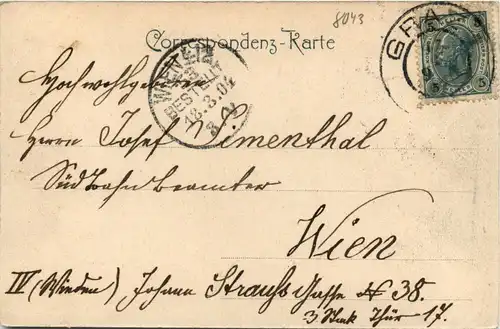 8043
Correspondenz-Karte
GRA
5 5
BESTELLT
13.3.04
Hochwohlgeboren
Herrn Josef Blumenthal
Südbahn beamter
Wien
IV (Wieden) Johann Strauss Gasse № 38.
3 Stock Thür 17.